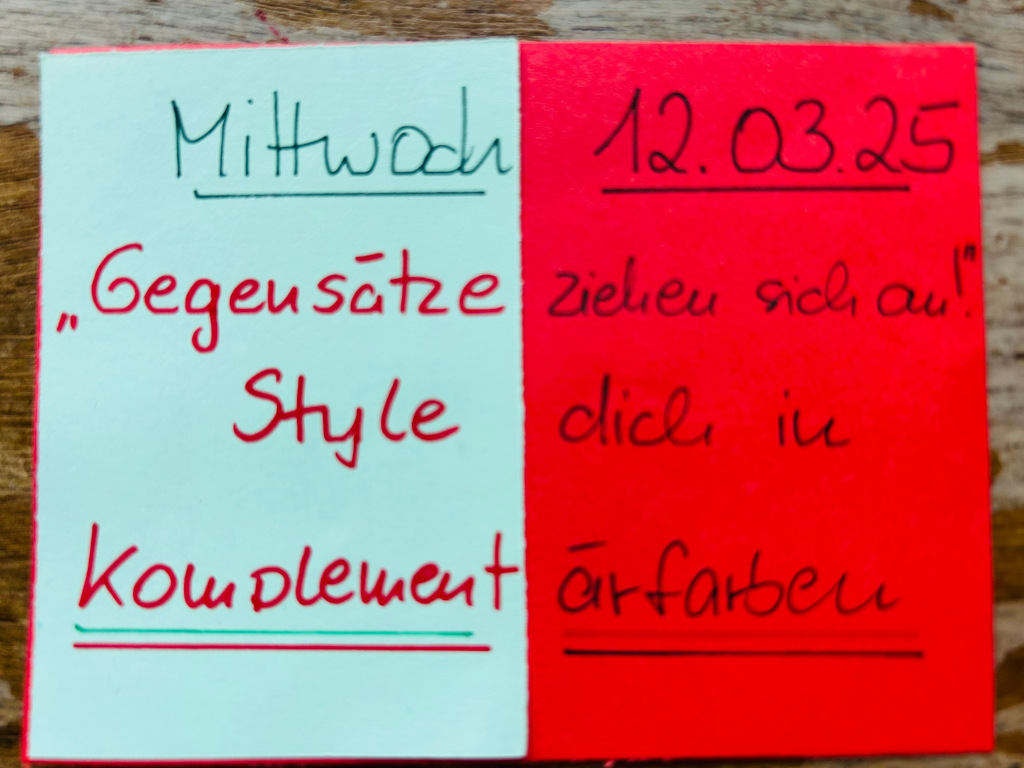 Mittwoch 12.03.25
„Gegensätze ziehen sich an!"
Style dich in
Komplementärfarben